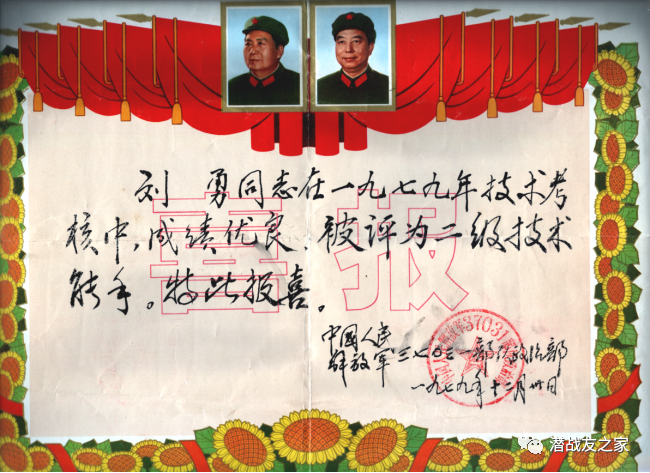 喜报
刘勇同志在一九七九年技术考
核中,成绩优良,被评为二级技术
能手。特此报喜。
中國人民
解放军三七〇三一部队政治部
37031
一九七九年十二月卅日
潜战友之家